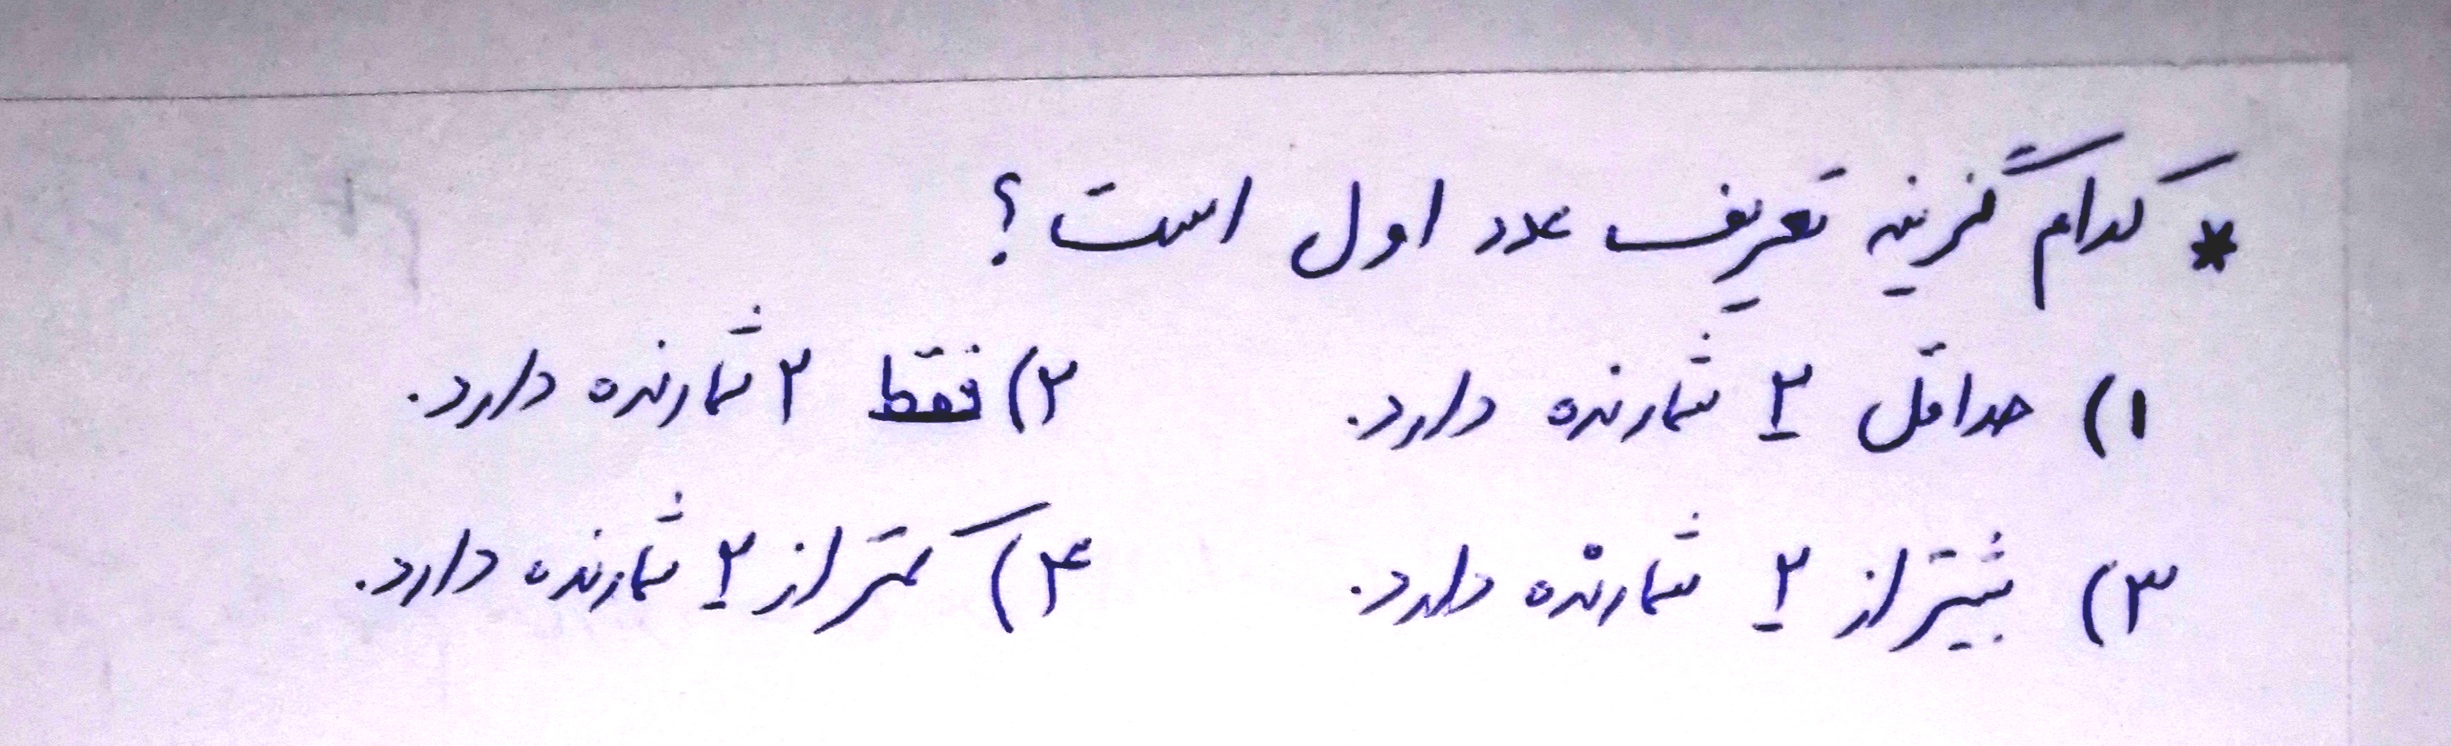 * کدام گزینه تعریف عدد اول است؟
۱) حداقل ۲ شمارنده دارد. ۲) فقط ۲ شمارنده دارد.
۳) بیشتر از ۲ شمارنده دارد. ۴) کمتر از ۲ شمارنده دارد.